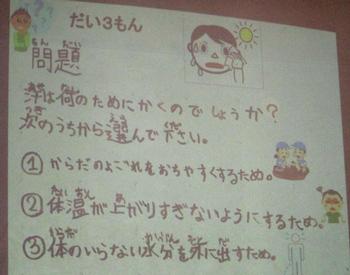 だい3もん
問題
汗は何のためにかくのでしょうか?
次のうちから選んで下さい。
①からだのよごれをおちやすくするため。
②体温が上がりすぎないようにするため。
③体のいらない水分を外に出すため。